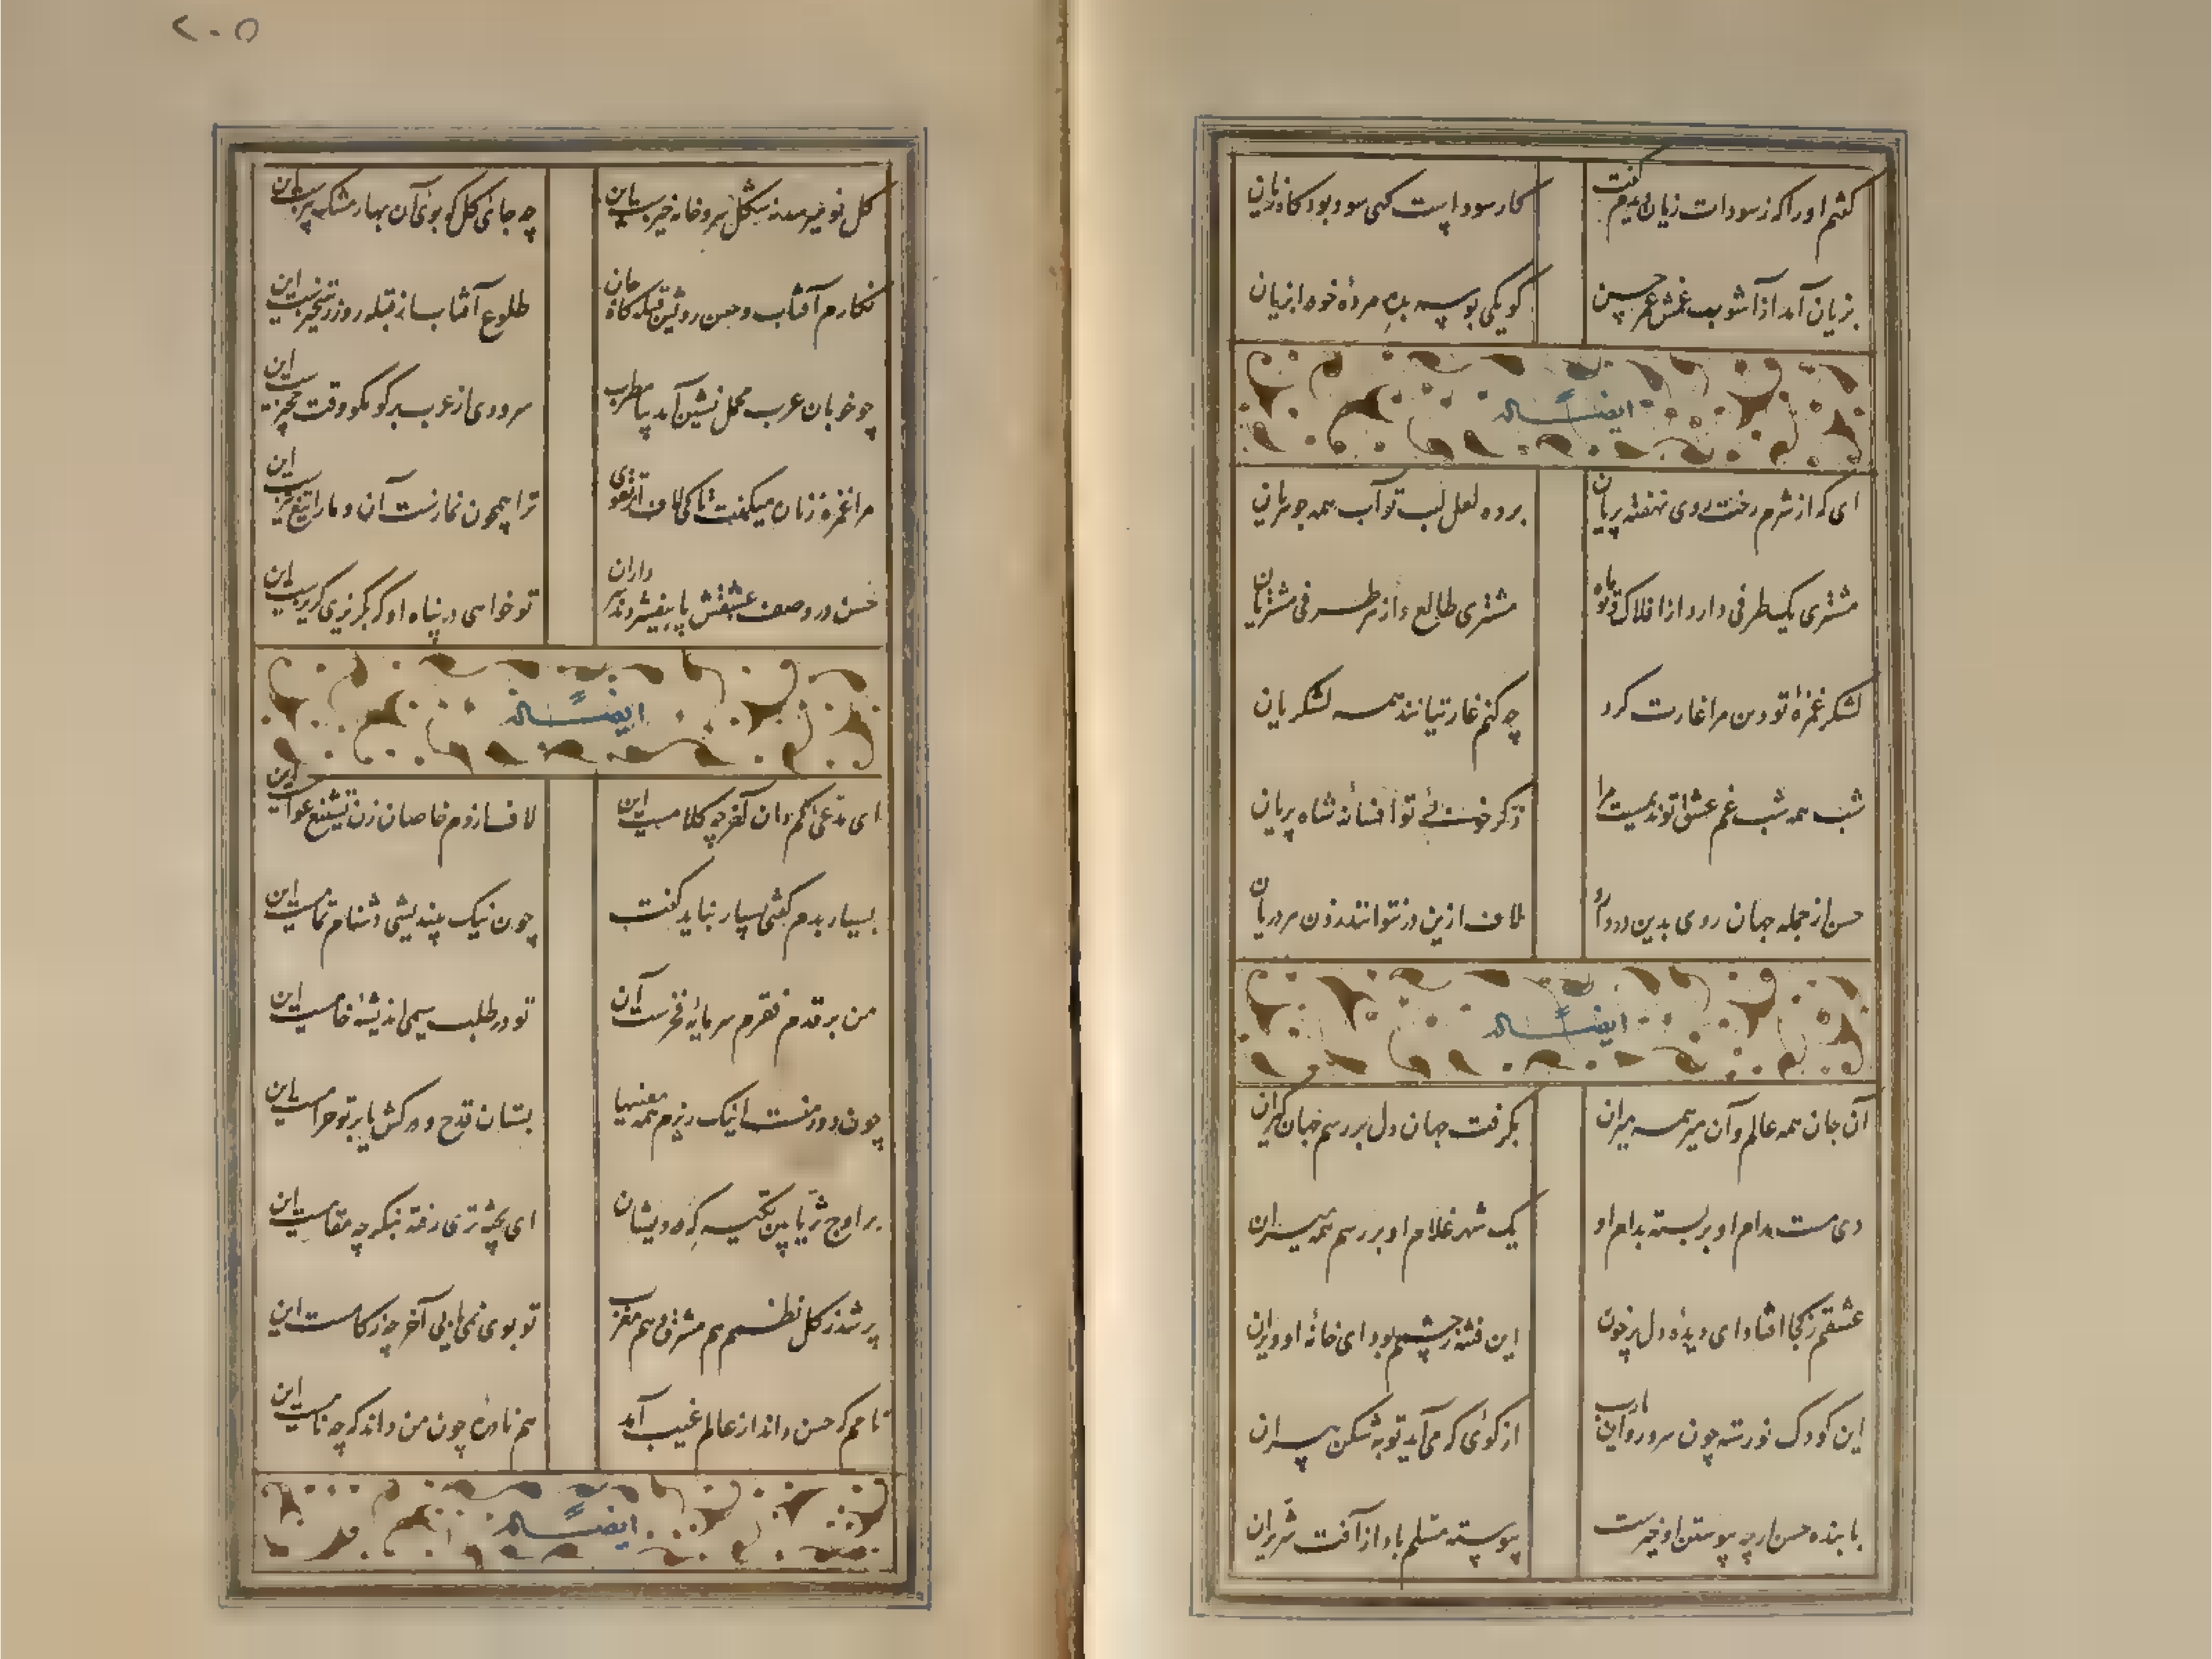 گفتم او را که ز سودات زیان دیدم گفت
کار سودا ست گهی سود بود گاه زیان
بزیان آمد از آشوب غمش عمر حسن
کو یکی بوسه بده مرده خود را بزیان
ایضاً له
ای که از شرم رخت روی نهفته پریان
برده لعل لب تو آب همه جوهریان
مشتری یکطرفی دارد از افلاک و تو ماه
مشتری طالع و از هر طرفی مشتریان
لشکر غمزه تو دین مرا غارت کرد
چه کنم غارتیانند همه لشکریان
شب همه شب غم عشق تو ندیمیست مرا
ذکر خوبی تو افسانه شاه پریان
حسن از جمله جهان روی بدین در دارد
لاف ازین در نتوانند زدن سردریان
ایضاً له
آن جان همه عالم و آن میر همه میران
بگرفت جهان دل بر رسم جهان گیران
دی مست مدام او بر بسته بدام او
یک شهر غلام او بر رسم همه میران
عشقم ز کجا افتاد ای دیده دل پر خون
این فتنه ز چشمم بود ای خانه او ویران
این کودک نورسته چون سرو روان یارب
از کوی که می آید توبه شکن پیران
با بنده حسن ار چه پیوستن او خیرست
پیوسته مسلم باد از آفت شریران
۲۰۵
گل نوخیز بشکل سرو خانه خیزست این
چه جای گل که بوی آن بهار مشک بیزست این
نگارم آفتاب و حسن رویش قبله گاه جان
طلوع آفتاب از قبله روز رستخیزست این
چو خوبان عرب محمل نشین آمد بیا مطرب
سرودی از عرب برگو مگو وقت حجیزست این
مرا غمزه زنان میگفت تا کی لاف از تقوی
ترا همچون نمازست آن و ما را تیغ تیزست این
حسن در وصف عشقش پا بیفشردند سرداران
تو خواهی در پناه او گر بگریزی گریزست این
ایضاً له
ای مدعی کم دان آخر چه کلامست این
لاف از دم خاصان زن تشنیع عوامست این
بسیار بدم گفتی بسیار نباید گفت
چون نیک بیندیشی دشنام تمامست این
من بر قدم فقرم سرمایه فخرست آن
تو در طلب سیمی اندیشه خامست این
چون دور منست اینک ریزم همه معنیها
بستان قدح و درکش یا بر تو حرامست این
بر اوج ثریا بین تکیه گه درویشان
ای پخته تری رفته بنگر چه مقامست این
پر شد ز گل نظمم هم مشرق و هم مغرب
تو بوی نمی یابی آخر چه زکامست این
نامم که حسن داند از عالم غیب آمد
هم نادره چون من داند که چه نامست این
ایضاً له